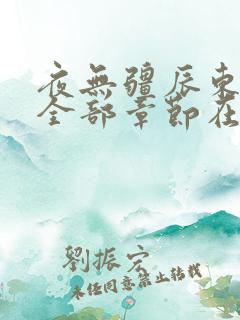 夜無疆辰東
全部章節在
劉振宏
未经同意禁止转载